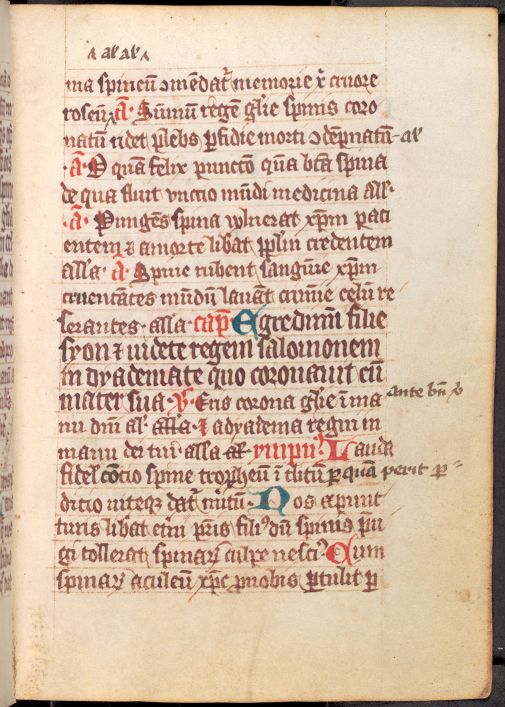 al al al
ma spineū ↄmēdat memorie xp̄i cruore
roseū A Summū regē glīe spinis coro
natū ridet plebs perfidie morti ↄdēpnatū al
A O quā felix punctō quā bt̄a spina
de qua fluit vnctio mūdi medicina all
A Pungēs spina vulnerat xp̄m pati
entem ⁊ a morte libat pplm credentem
alla A Spine rubent sanguīe xp̄m
cruentātes mūdū lauāt crimīe celū re
serantes alla cap Egredimī filie
syon ⁊ uidete regem salomonem
in dyademate quo coronauit eū
mater sua V Eris corona glīe ī ma
nu dn̄i al alla ⁊ dyadema regni in
manu dei tui alla al ympn9 Lauda
fidel cōcio spine tropheū ī clitū per quā perit per
ditio uiteqꝫ dat
Nos a punc
turis libat etn̄i pr̄is fili9 dū spinis pū
gi tollerat spinarꝫ culpe nesci9 Cum
spinarꝫ aculeū xp̄c pro nobis pertulit p